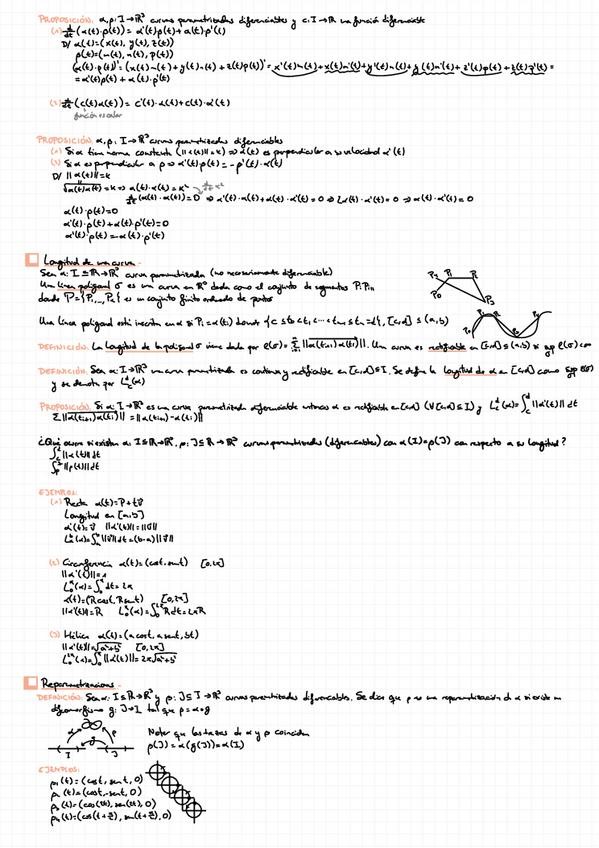 PROPOSICIÓN: α,ρ: I→ℝ³ curvas parametrizadas diferenciables y c: I→ℝ una función diferenciable
(1) d/dt (α(t)·ρ(t)) = α'(t)ρ(t)+α(t)·ρ'(t)
D/ α(t)=(x(t), y(t), z(t))
ρ(t)=(m(t), n(t), p(t))
(α(t)·ρ(t))' = (x(t)m(t)+y(t)n(t)+z(t)p(t))' = x'(t)m(t)+x(t)m'(t)+y'(t)n(t)+y(t)n'(t)+z'(t)p(t)+z(t)p'(t) =
= α'(t)ρ(t)+α(t)·ρ'(t)
(2) d/dt (c(t)α(t)) = c'(t)·α(t)+c(t)·α'(t)
función escalar
PROPOSICIÓN: α,ρ: I→ℝ³ curvas parametrizadas diferenciables
(1) Si α tiene norma constante (||α(t)||=k) ⇒ α(t) es perpendicular a su velocidad α'(t)
(2) Si α es perpendicular a ρ ⇒ α'(t)ρ(t)=-ρ'(t)·α(t)
D/ ||α(t)||=k
√α(t)α(t)=k ⇒ α(t)·α(t)=k²
d/dt(α(t)·α(t))=0 ⇒ α'(t)·α(t)+α(t)·α'(t)=0 ⇒ 2α(t)·α'(t)=0 ⇒ α(t)·α'(t)=0
α(t)·ρ(t)=0
α'(t)·ρ(t)+α(t)·ρ'(t)=0
α'(t)ρ(t)=-α(t)·ρ'(t)
Longitud de una curva
Sea α: I⊆ℝ→ℝ³ curva parametrizada (no necesariamente diferenciable)
Una línea poligonal σ es una curva en ℝ³ dada como el conjunto de segmentos
donde P={P₁,...,Pₙ} es un conjunto finito ordenado de puntos
Una línea poligonal está inscrita en α si Pᵢ=α(tᵢ) donde {c≤t₀<t₁<...<tₙ₋₁≤tₙ=d}, [c,d]⊆(a,b)
DEFINICIÓN: La longitud de la poligonal σ viene dada por ℓ(σ)=Σ||α(tᵢ₊₁)-α(tᵢ)||. Una curva es rectificable en [c,d]⊆(a,b) si sup ℓ(σ)<∞
DEFINICIÓN: Sea α: I→ℝ³ una curva parametrizada es continua y rectificable en [c,d]⊆I. Se define la longitud de α en [c,d] como sup ℓ(σ)
y se denota por L(α)
PROPOSICIÓN: Si α: I→ℝ³ es una curva parametrizada diferenciable entonces α es rectificable en [c,d] (∀[c,d]⊆I) y L(α)=∫||α'(t)||dt
Σ||α(tᵢ₊₁)-α(tᵢ)||
¿Qué ocurre si existen α: I⊆ℝ→ℝ³, ρ: J⊆ℝ→ℝ³ curvas parametrizadas (diferenciables) con α(I)=ρ(J) con respecto a su longitud?
EJEMPLOS:
(1) Recta α(t)=P+tv
Longitud en [a,b]
α'(t)=v ||α'(t)||=||v||
L(α)=∫||v||dt=(b-a)||v||
(2) Circunferencia α(t)=(cost, sent) [0,2π]
||α'(t)||=1
L(α)=∫dt=2π
α(t)=(Rcost, Rsent) [0,2π]
||α'(t)||=R L(α)=∫Rdt=2πR
(3) Hélice α(t)=(a cost, a sent, bt)
||α'(t)||=√a²+b² [0,2π]
L(α)=∫||α'(t)||=2π√a²+b²
Reparametrizaciones
DEFINICIÓN: Sean α: I⊆ℝ→ℝ³ y ρ: J⊆ℝ→ℝ³ curvas parametrizadas diferenciables. Se dice que ρ es una reparametrización de α si existe un
difeomorfismo g: J→I tal que ρ=α∘g
α g ρ
I J
Notar que las trazas de α y ρ coinciden
ρ(J)=α(g(J))=α(I)
EJEMPLOS:
ρ₁(t)=(cost, sent, 0)
ρ₂(t)=(cost,-sent, 0)
ρ₃(t)=(cos(2t), sen(2t), 0)